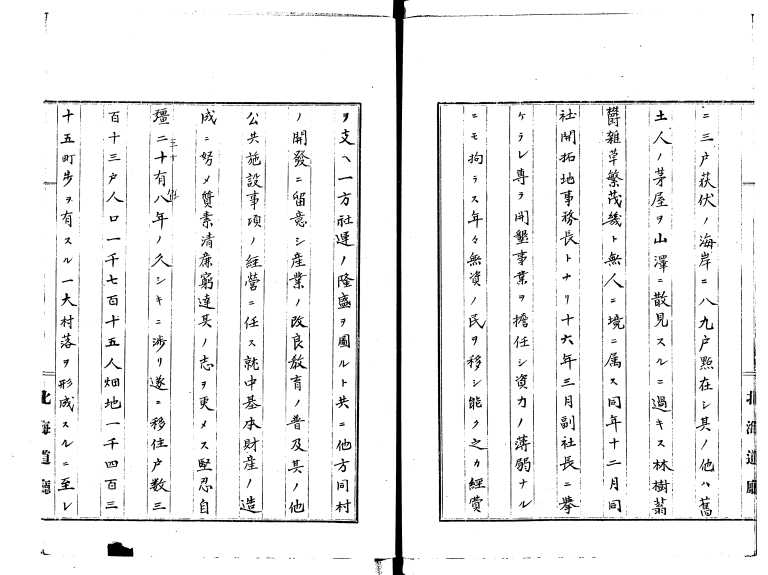 ニ三戸荻伏ノ海岸ニ八九戸點在シ其ノ他ハ舊
土人ノ茅屋ヲ山澤ニ散見スルニ過キス林樹蓊
欝雜草繁茂幾ト無人ニ境ニ属ス同年十二月同
社開拓地事務長トナリ十六年三月副社長ニ擧
ケラレ專ラ開墾事業ヲ擔任シ資力ノ薄弱ナル
ニモ拘ラス年々無資ノ民ヲ移シ能ク之カ經費
北海道廳
ヲ支ヘ一方社運ノ隆盛ヲ圖ルト共ニ他方同村
ノ開發ニ留意シ産業ノ改良教育ノ普及其ノ他
公共施設事項ノ経營ニ任ス就中基本財産ノ造
成ニ努メ質素清廉窮達其ノ志ヲ更メス堅忍自
彊二十有八年ノ久シキニ渉リ遂ニ移住戸数三
百十三戸人口一千七百十五人畑地一千四百三
十五町歩ヲ有スル一大村落ヲ形成スルニ至レ
北海道廳